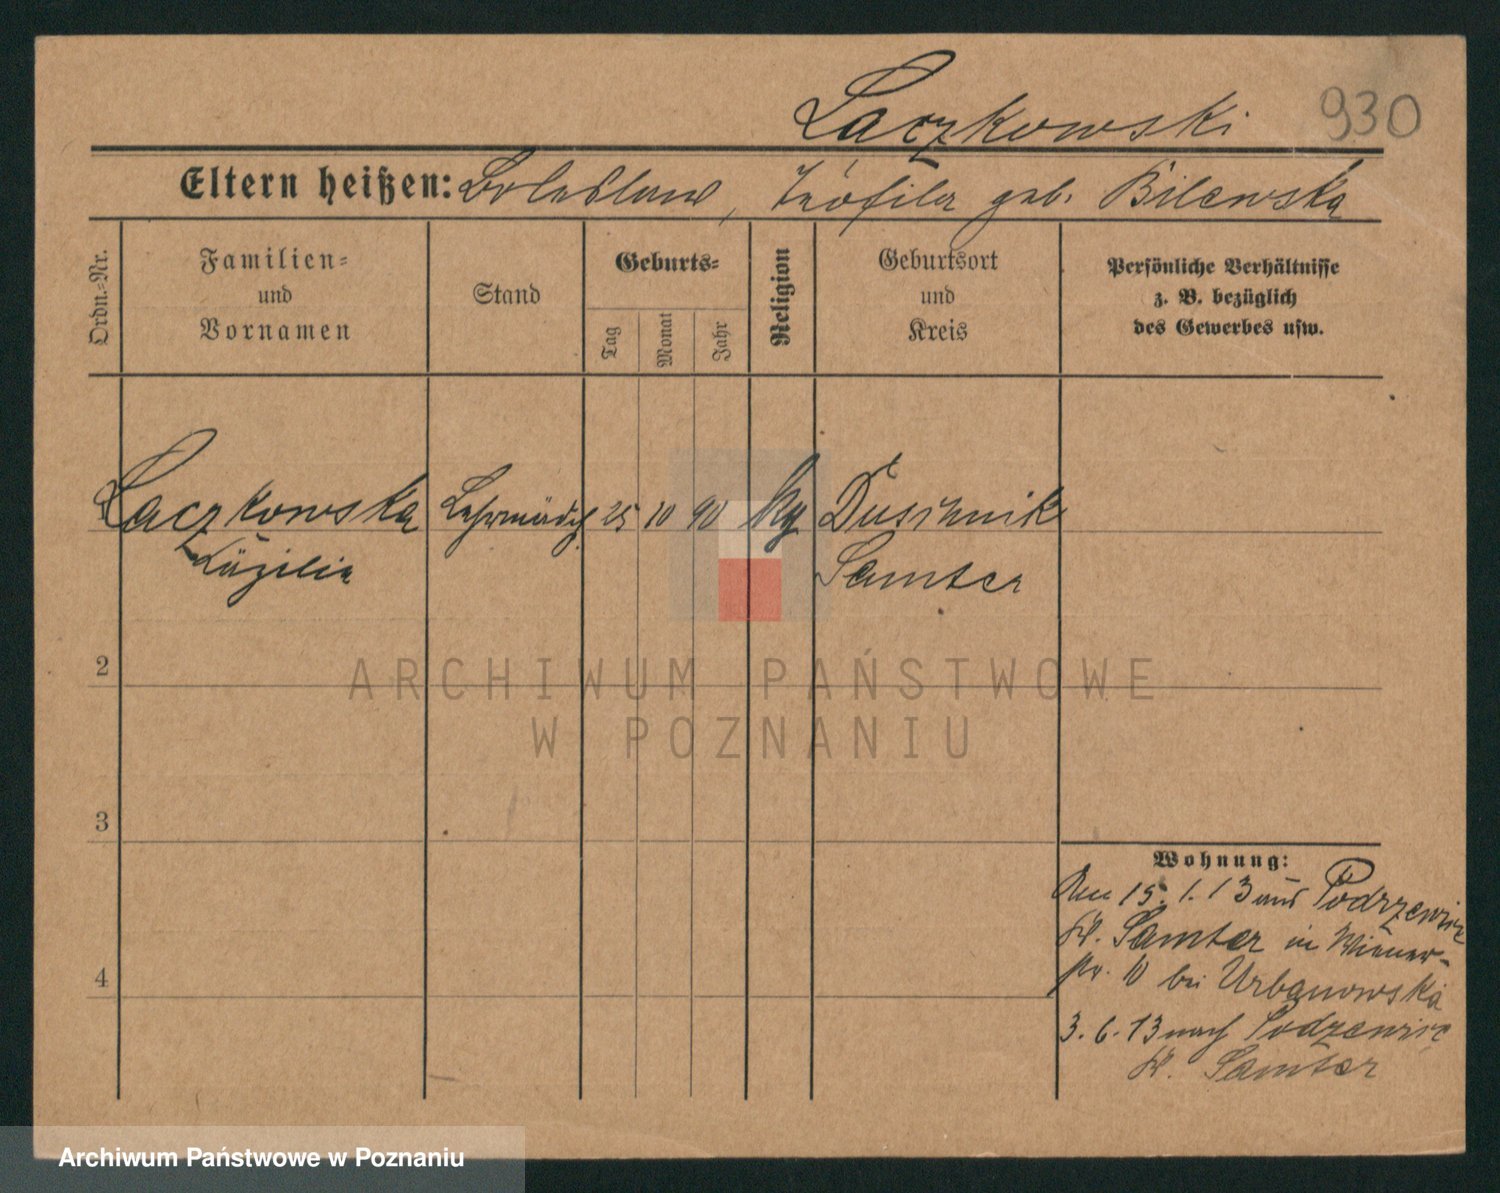 Łaczkowski 930
Eltern heißen: Boleslaus, Teofila geb. Bilewska
Ordn.=Nr.
Familien=
und
Vornamen
Stand
Geburts=
Tag
Monat
Jahr
Religion
Geburtsort
und
Kreis
Persönliche Verhältnisse
z. B. bezüglich
des Gewerbes usw.
Łaczkowska Lehrmädch. 25 10 90 kg Duschnik
Cäzilia Samter
2
ARCHIWUM PAŃSTWOWE
W POZNANIU
3
Wohnung:
Am 15. 1. 13 aus Podrzewie
Kr. Samter in Wiener-
str. 10 bei Urbanowska
4
3. 6. 13 nach Podzewie
Kr. Samter
Archiwum Państwowe w Poznaniu